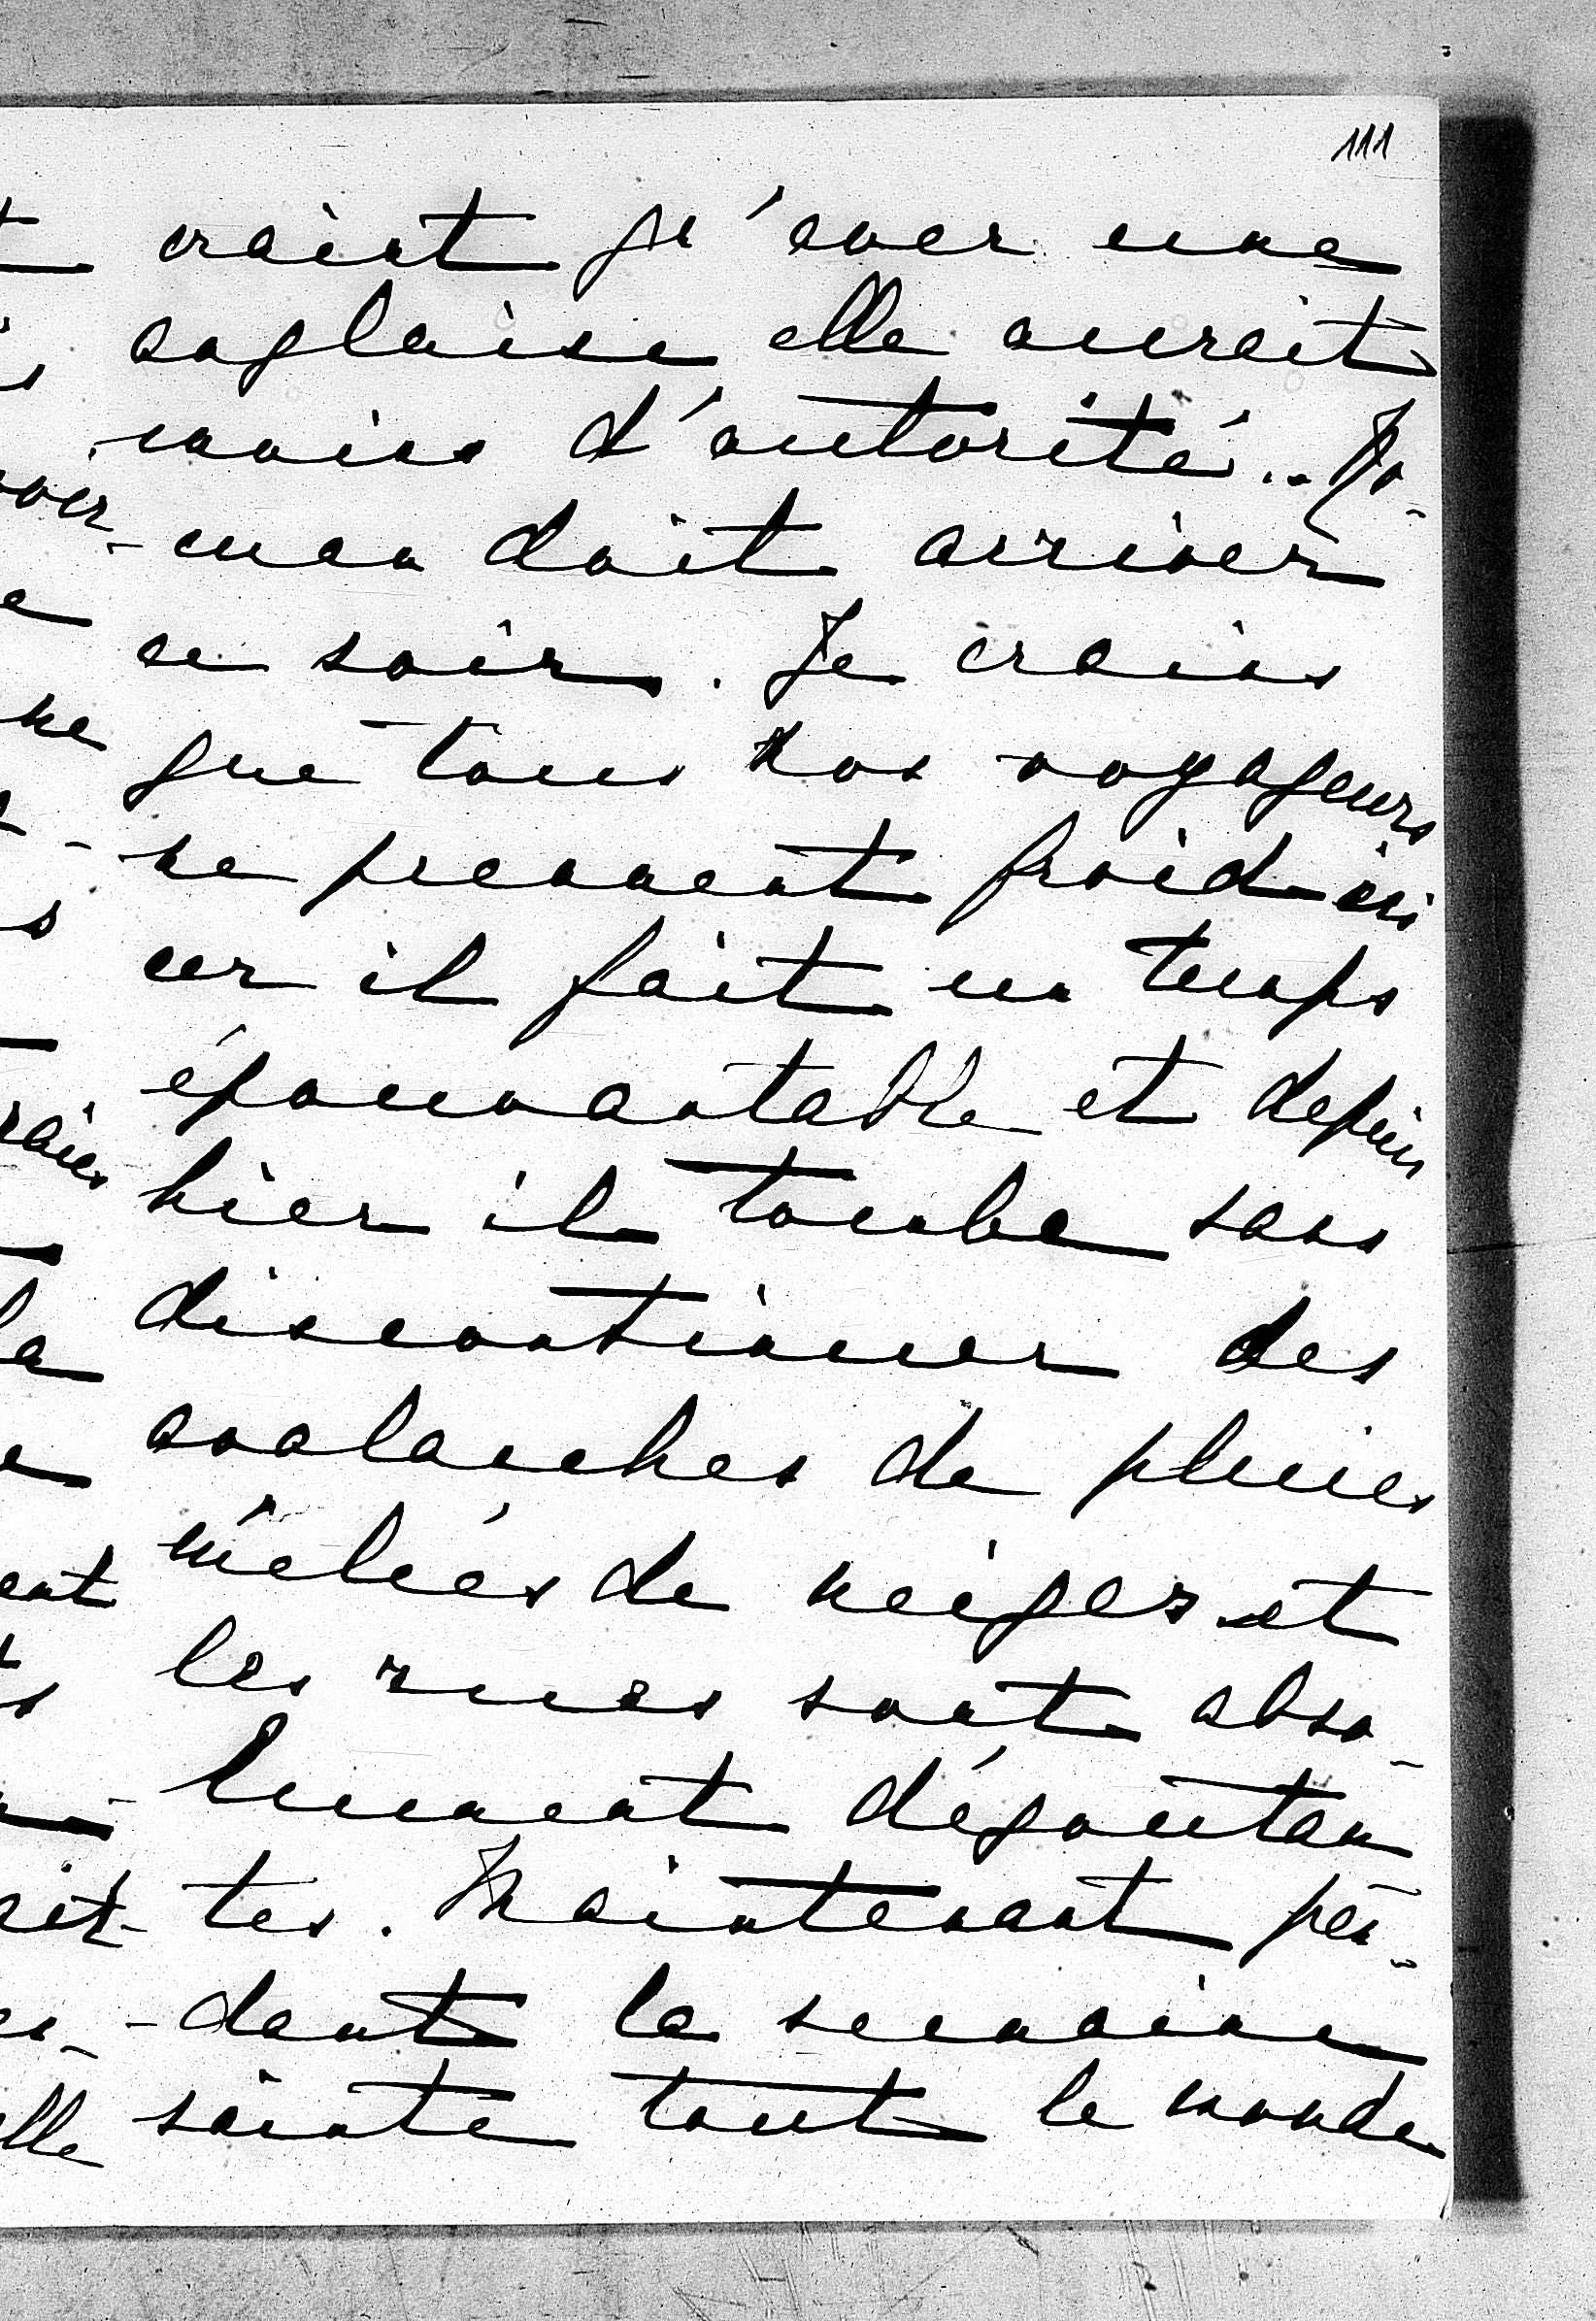 111
craint qu'avec une
anglaise elle aurait
moins d'autorité.. Ro-
-man doit arriver
ce soir. Je crains
que tous nos voyageurs
ne prennent froid ici
car il fait un temps
épouvantable et depuis
hier il tombe sans
discontinuer des
avalanches de pluies
mêlées de neiges et
les rues sont abso-
lument dégoutan
tes. Maintenant pen-
-dant la semaine
sainte tout le monde